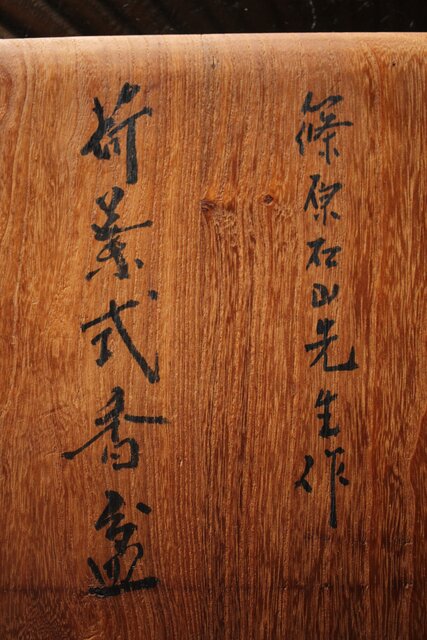 篠原石山先生作
荷葉式香盆